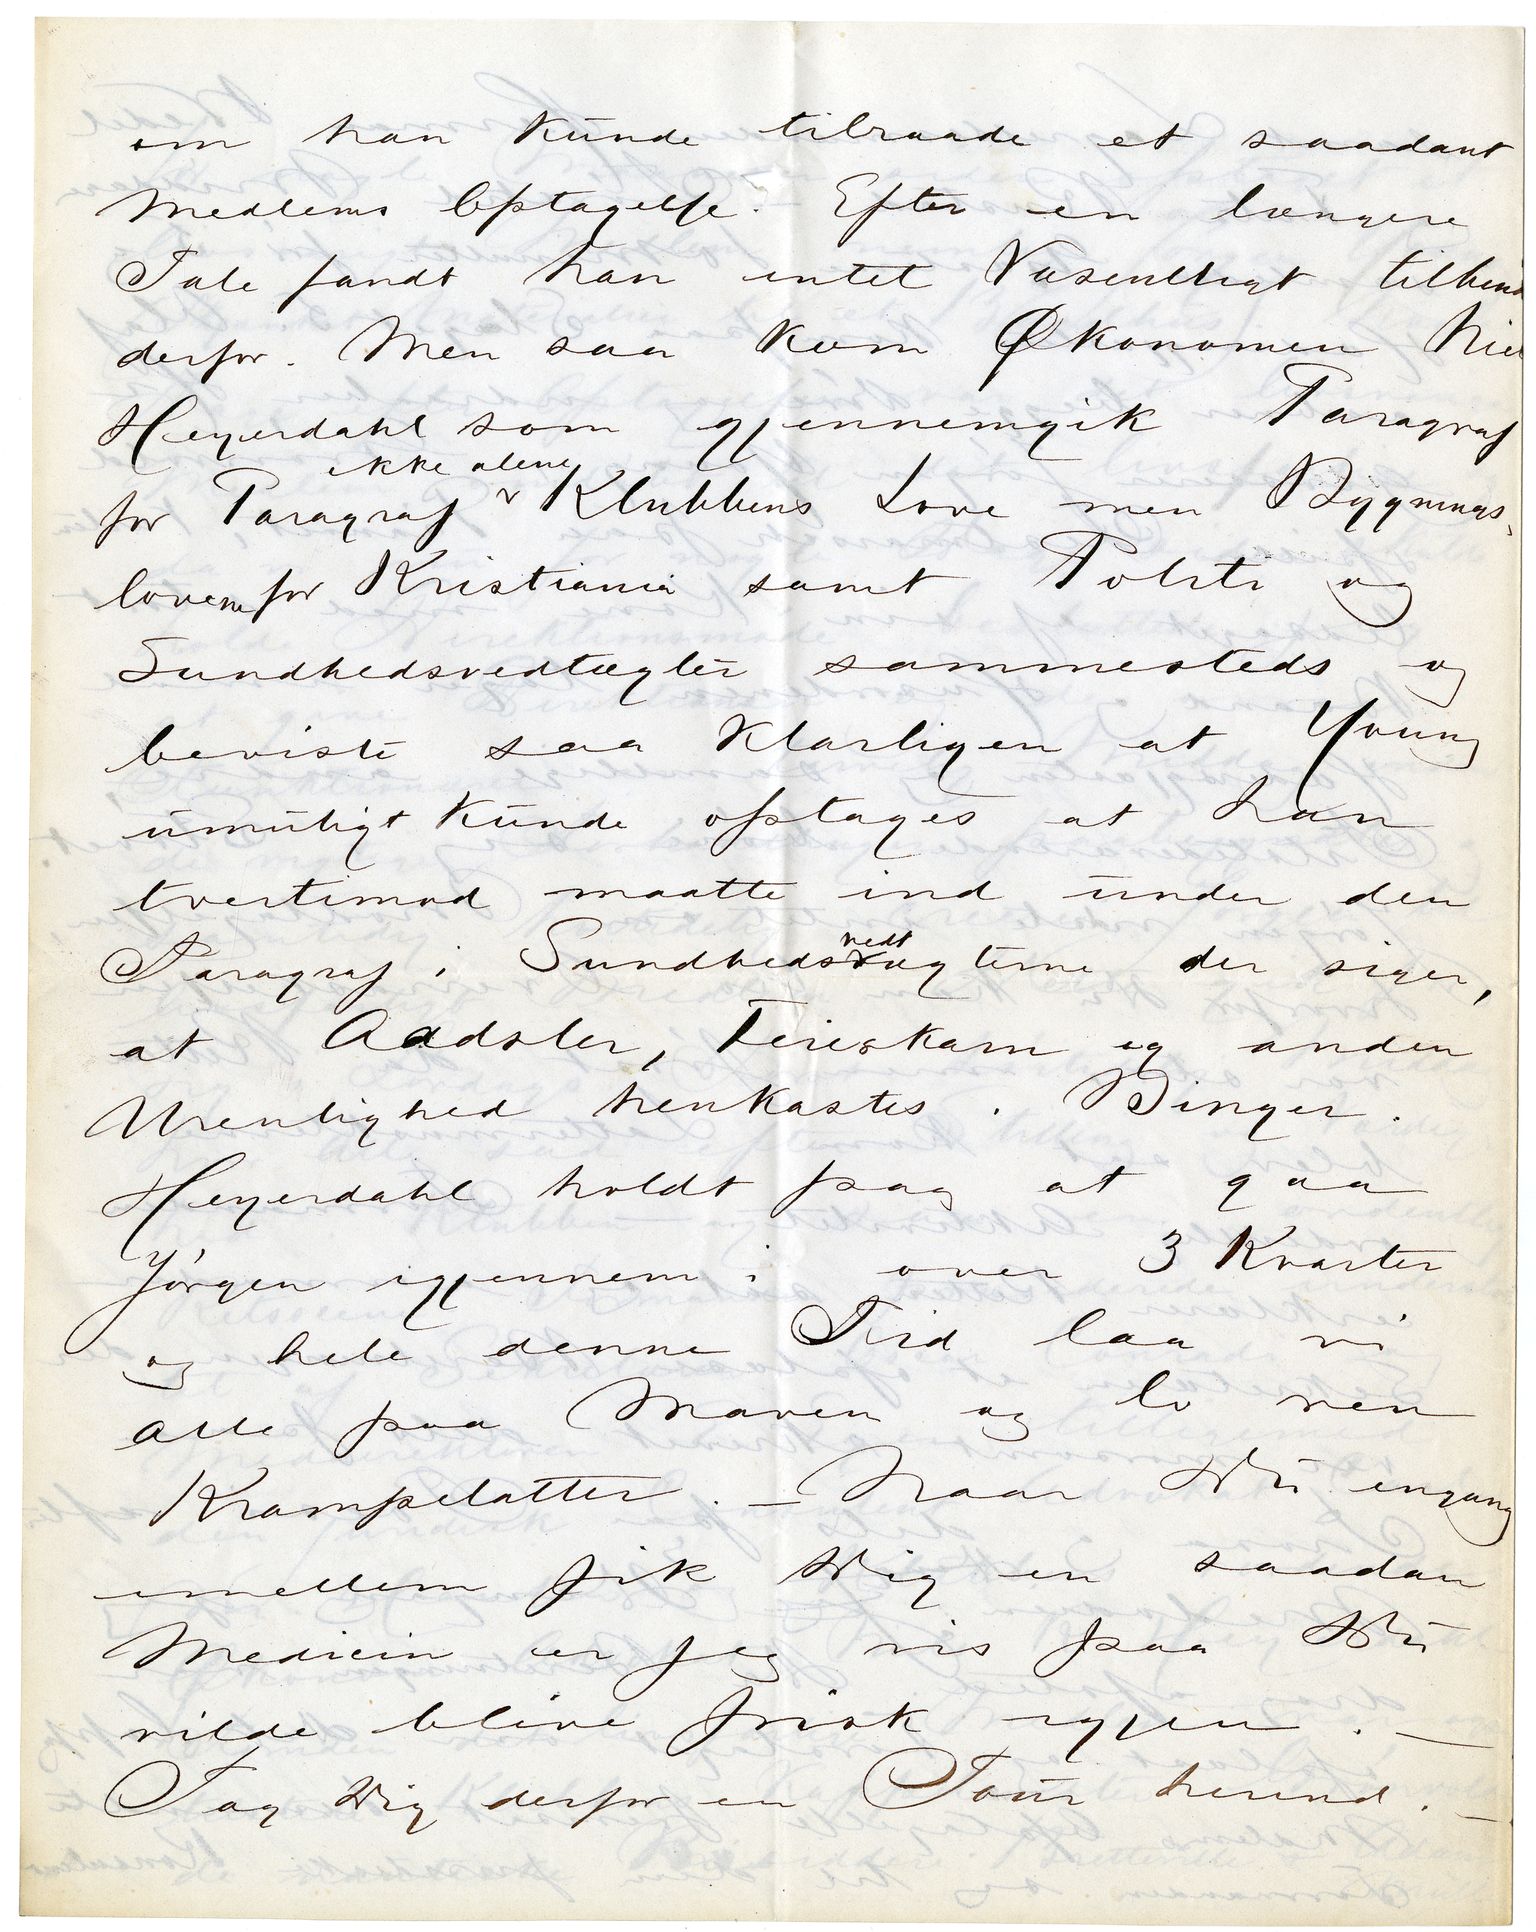 om han kunde tilraade et saadant
Medlems Optagelse. Efter en længere
Tale fandt han intet Væsentligt tilhin
derfor. Men saa kom Økonomen Niel
Heyerdahl som gjennemgik Paragraf
for Paragraf ikke alene Klubbens Love men Bygnings-
lovene for Kristiania samt Politi og
Sundhedsvedtægter sammesteds og
beviste saa klarligen at Young
umuligt kunde optages at han
tvertimod maatte ind under den
Paragraf i Sundhedsvedtægterne der siger,
at Aadsler, Feieskarn og anden
Urenlighed henkastes. Binger.
Heyerdahl holdt paa at gaa
Jørgen igjennem i over 3 Kvarter
og hele denne Tid laa vi
alle paa Maven og lo ren
Krampelatter. – Naar Du engang
imellem fik Dig en saadan
Medicin er jeg vis paa Du
vilde blive frisk igjen. –
Tag Dig derfor en Tour herind. –